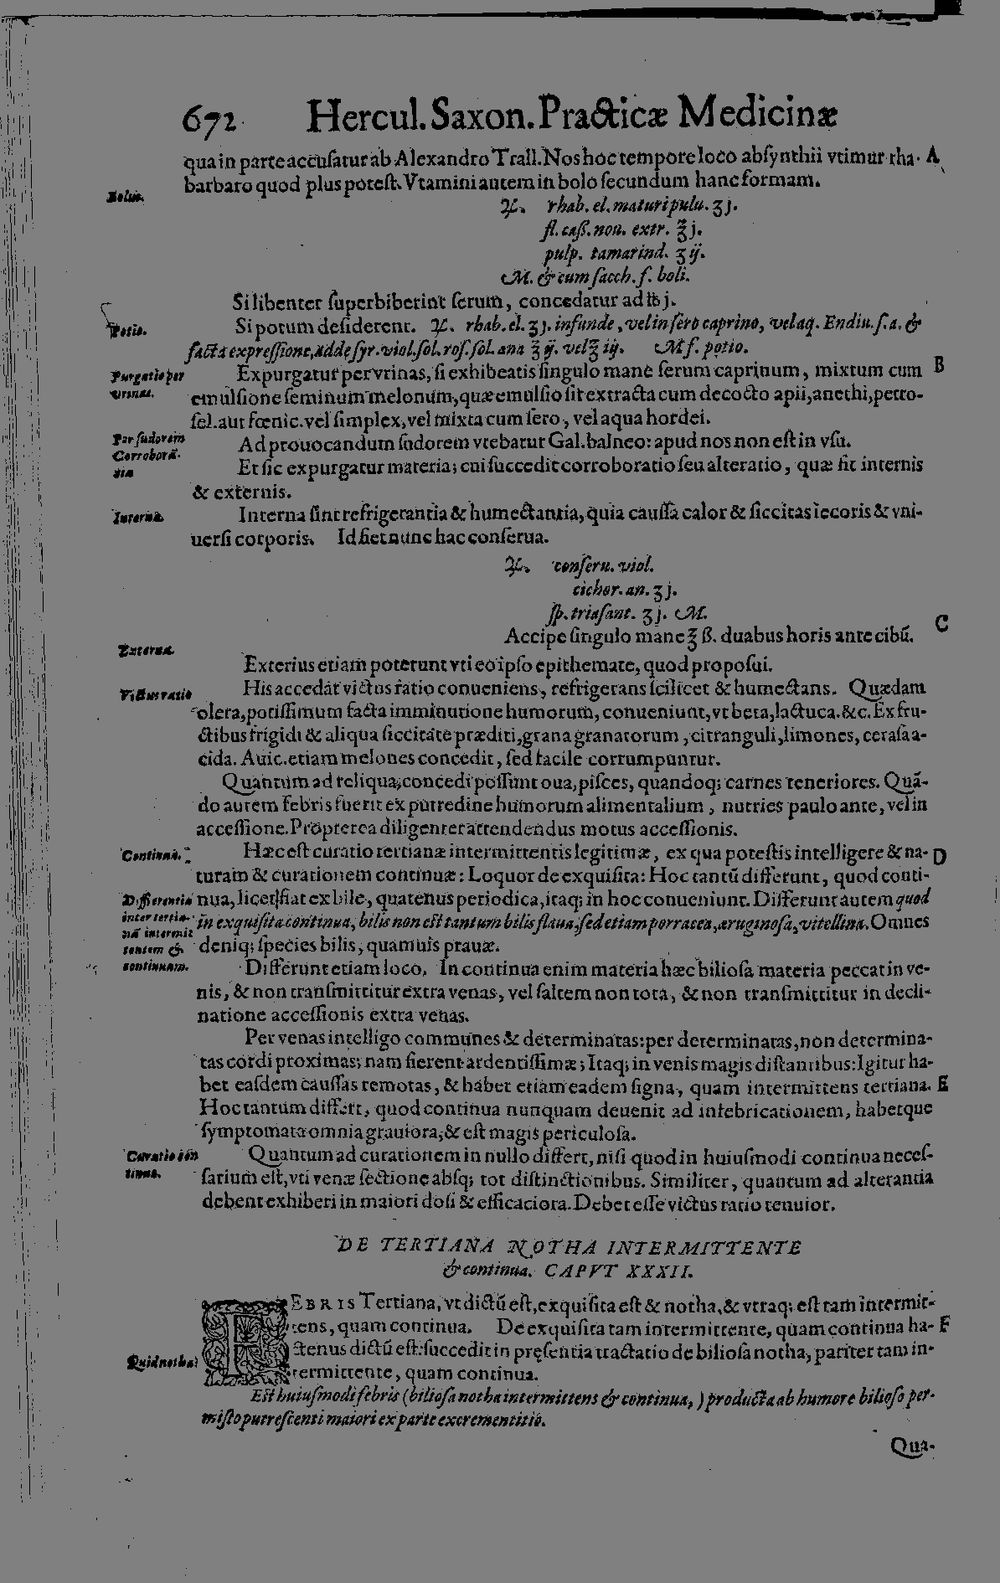 672 Hercul. Saxon. Practicæ Medicinæ
qua in parte accusatur ab Alexandro Trall. Nos hoc tempore loco absynthii vtimur rha- A
barbaro quod plus potest. Vtamini autem in bolo secundum hanc formam.
Bolus.
♃. rhab. el. maturi pulu. ʒ j.
fl. caß. nou. extr. ℥ j.
pulp. tamarind. ʒ ij.
M. & cum sacch. f. boli.
Si libenter superbiberint serum, concedatur ad ℔ j.
Potio.
Si potum desiderent. ♃. rhab. el. ʒj. infunde, vel in sero caprino, vel aq. Endiu. s. a. &
facta expressione, adde syr. viol. sol. ros. sol. ana ℥ ij. vel ℥ iij. M f. potio.
Purgatio per
vrinas.
Expurgatur per vrinas, si exhibeatis singulo mane serum caprinum, mixtum cum B
emulsione seminum melonum, quæ emulsio sit extracta cum decocto apii, anethi, petro-
sel. aut fœnic. vel simplex, vel mixta cum sero, vel aqua hordei.
Per sudorem
Ad prouocandum sudorem vtebatur Gal. balneo: apud nos non est in vsu.
Corroborā-
tia
Et sic expurgatur materia; cui succedit corroboratio seu alteratio, quæ fit internis
& externis.
Interna.
Interna sint refrigerantia & humectantia, quia caussa calor & siccitas iecoris & vni-
uersi corporis. Id fiet nunc hac conserua.
♃. conseru. viol.
cichor. an. ʒ j.
sp. triasant. ʒ j. M.
Accipe singulo mane ℥ ß. duabus horis ante cibū. C
Externa.
Exterius etiam poterunt vti eo ipso epithemate, quod proposui.
Victus ratio
His accedat victus ratio conueniens, refrigerans scilicet & humectans. Quædam
olera, potissimum facta imminutione humorum, conueniunt, vt beta, lactuca. &c. Ex fru-
ctibus frigidi & aliqua siccitate præditi, grana granatorum, citranguli, limones, cerasa a-
cida. Auic. etiam melones concedit, sed facile corrumpuntur.
Quantum ad reliqua, concedi possunt oua, pisces, quandoq; carnes teneriores. Quā-
do autem febris fuerit ex putredine humorum alimentalium, nutries paulo ante, vel in
accessione. Propterea diligenter attendendus motus accessionis.
Continua.
Hæc est curatio tertianæ intermittentis legitimæ, ex qua potestis intelligere & na- D
turam & curationem continuæ: Loquor de exquisita: Hoc tantū differunt, quod conti-
Differentia
inter tertia-
nā intermit
tentem &
continuam.
nua, licet fiat ex bile, quatenus periodica, itaq; in hoc conueniunt. Differunt autem quod
in exquisita continua, bilis non est tantum bilis flaua, sed etiam porracea, æruginosa, vitellina. Omnes
deniq; species bilis, quamuis prauæ.
Differunt etiam loco. In continua enim materia hæc biliosa materia peccat in ve-
nis, & non transmittitur extra venas, vel saltem non tota, & non transmittitur in decli-
natione accessionis extra venas.
Per venas intelligo communes & determinatas: per determinatas, non determina-
tas cordi proximas; nam fierent ardentissimæ; Itaq; in venis magis distantibus: Igitur ha-
bet easdem caussas remotas, & habet etiam eadem signa, quam intermittens tertiana. E
Hoc tantum differt, quod continua nunquam deuenit ad infebricationem, habetque
symptomata omnia grauiora, & est magis periculosa.
Curatio con
tinua.
Quantum ad curationem in nullo differt, nisi quod in huiusmodi continua neces-
sarium est, vti venæ sectione absq; tot distinctionibus. Similiter, quantum ad alterantia
debent exhiberi in maiori dosi & efficaciora. Debet esse victus ratio tenuior.
DE TERTIANA NOTHA INTERMITTENTE
& continua. CAPVT XXXII.
FEBRIS Tertiana, vt dictū est, exquisita est & notha, & vtraq; est tam intermit-
tens, quam continua. De exquisita tam intermittente, quam continua ha- F
ctenus dictū est: succedit in pręsentia tractatio de biliosa notha, pariter tam in-
termittente, quam continua.
Quid notha?
Est huiusmodi febris (biliosa notha intermittens & continua,) producta ab humore bilioso per-
misto putrescenti maiori ex parte excrementitio.
Qua-